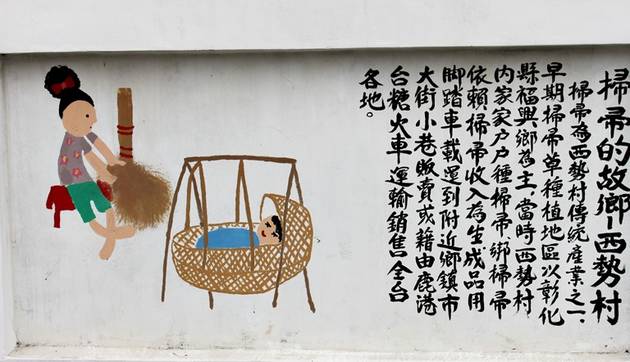 掃帚的故鄉—西勢村
掃帚為西勢村傳統產業之一、
早期掃帚草種植地區以彰化
縣福興鄉為主、當時西勢村
內家家户户種掃帚、綁掃帚
依賴掃帚收入為生成品用
脚踏車載運到附近鄉鎮市
大街小巷販賣或藉由鹿港
台糖火車運輸銷售全台
各地。